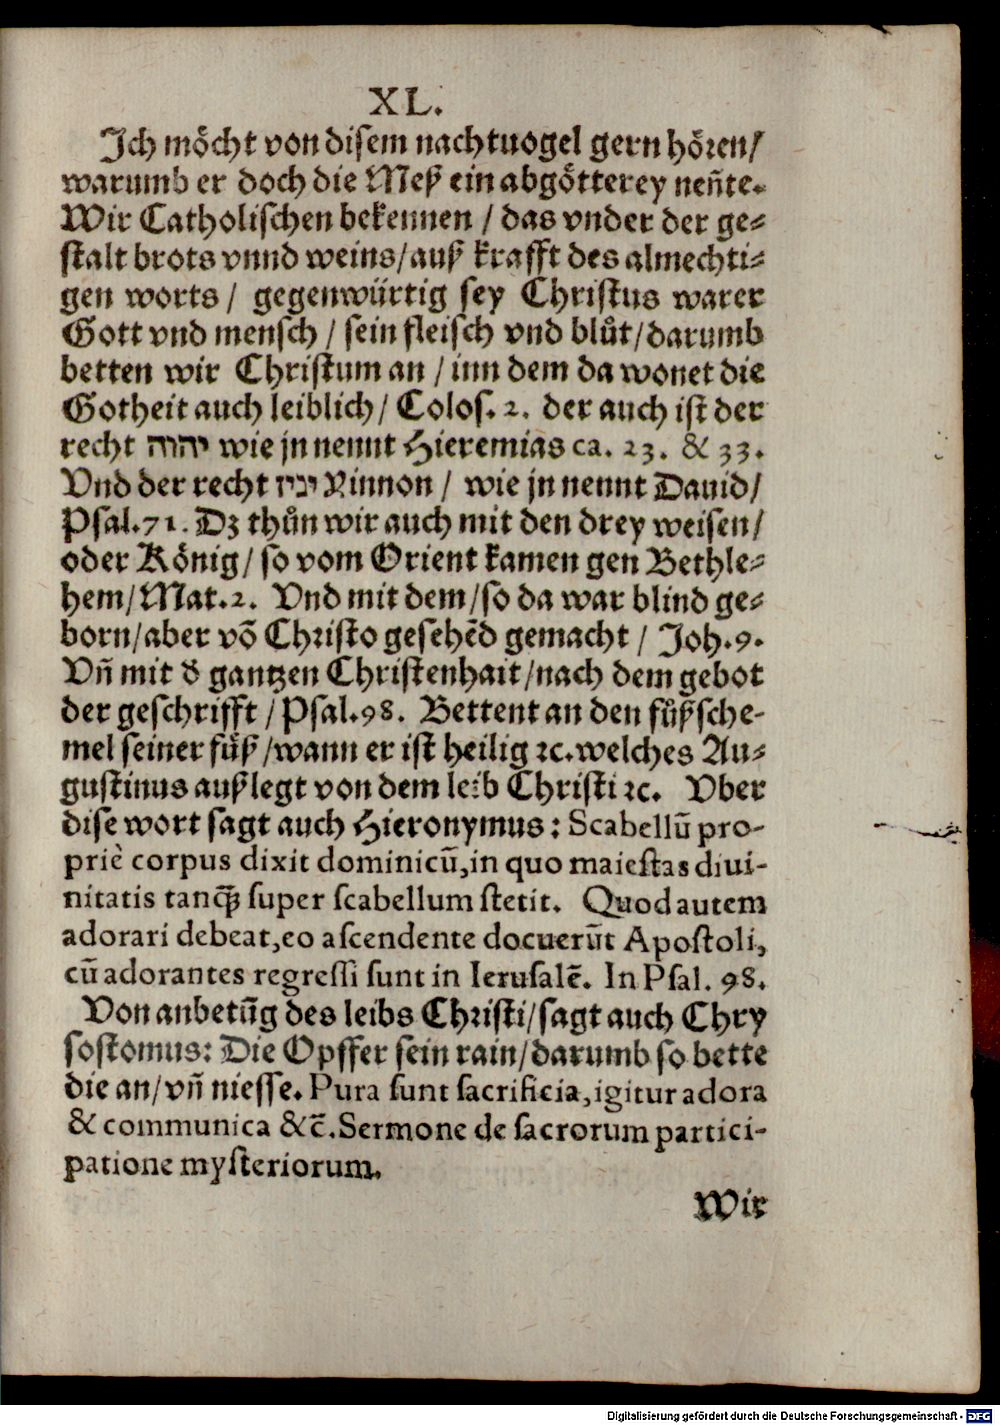 XL.
Ich möcht von disem nachtuogel gern hören/
warumb er doch die Meß ein abgötterey neñte.
Wir Catholischen bekennen / das vnder der ge-
stalt brots vnnd weins/auß krafft des almechti-
gen worts / gegenwürtig sey Christus warer
Gott vnd mensch / sein fleisch vnd blůt/darumb
betten wir Christum an / inn dem da wonet die
Gotheit auch leiblich/ Colos. 2. der auch ist der
recht יהוה wie jn nennt Hieremias ca. 23. & 33.
Vnd der recht ינין Rinnon / wie jn nennt Dauid/
Psal.71. Dz thůn wir auch mit den drey weisen/
oder König/ so vom Orient kamen gen Bethle-
hem/Mat.2. Vnd mit dem/so da war blind ge-
born/aber võ Christo gesehẽd gemacht / Joh.9.
Vñ mit d̕ gantzen Christenhait/nach dem gebot
der geschrifft / Psal.98. Bettent an den fůßsche-
mel seiner fůß /wann er ist heilig ꝛc.welches Au-
gustinus außlegt von dem leib Christi ꝛc. Vber
dise wort sagt auch Hieronymus: Scabellũ pro-
priè corpus dixit dominicũ,in quo maiestas diui-
nitatis tancꝙ super scabellum stetit. Quod autem
adorari debeat,eo ascendente docuerũt Apostoli,
cũ adorantes regressi sunt in Ierusalẽ. In Psal. 98.
Von anbetũg des leibs Christi/sagt auch Chry
sostomus: Die Opffer sein rain/darumb so bette
die an/vñ niesse. Pura sunt sacrificia,igitur adora
& communica &c̃.Sermone de sacrorum partici-
patione mysteriorum.
Wir
Digitalisierung gefördert durch die Deutsche Forschungsgemeinschaft - DFG